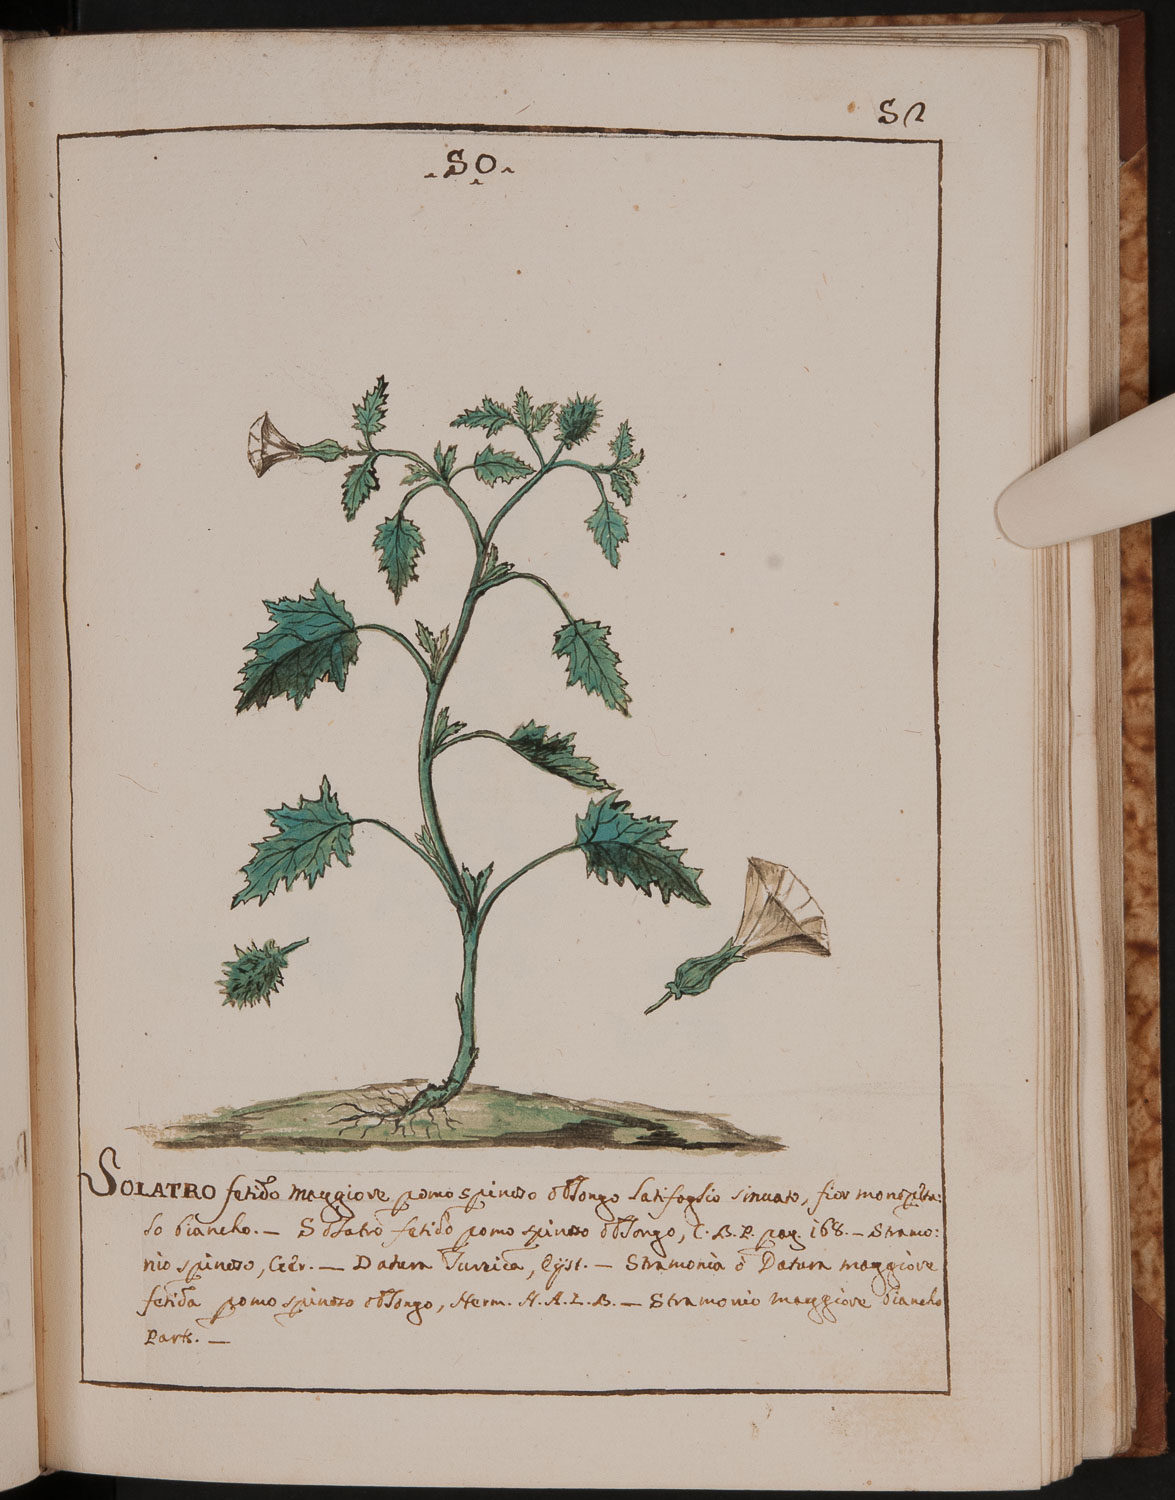 52
. SO .
SOLATRO fetido maggiore pomo spinoso oblongo latifoglio sinuato, fior monopeta:
lo biancho. — Solatro fetido pomo spinoso oblongo, C. B. P. pag. 168. — Stramo:
nio spinoso, Gèr. — Datura Turcica, Eyst. — Stramonia ò Datura maggiore
fetida pomo spinoso oblongo, Herm. H. A. L. B. — Stramonio maggiore biancho
Park. —